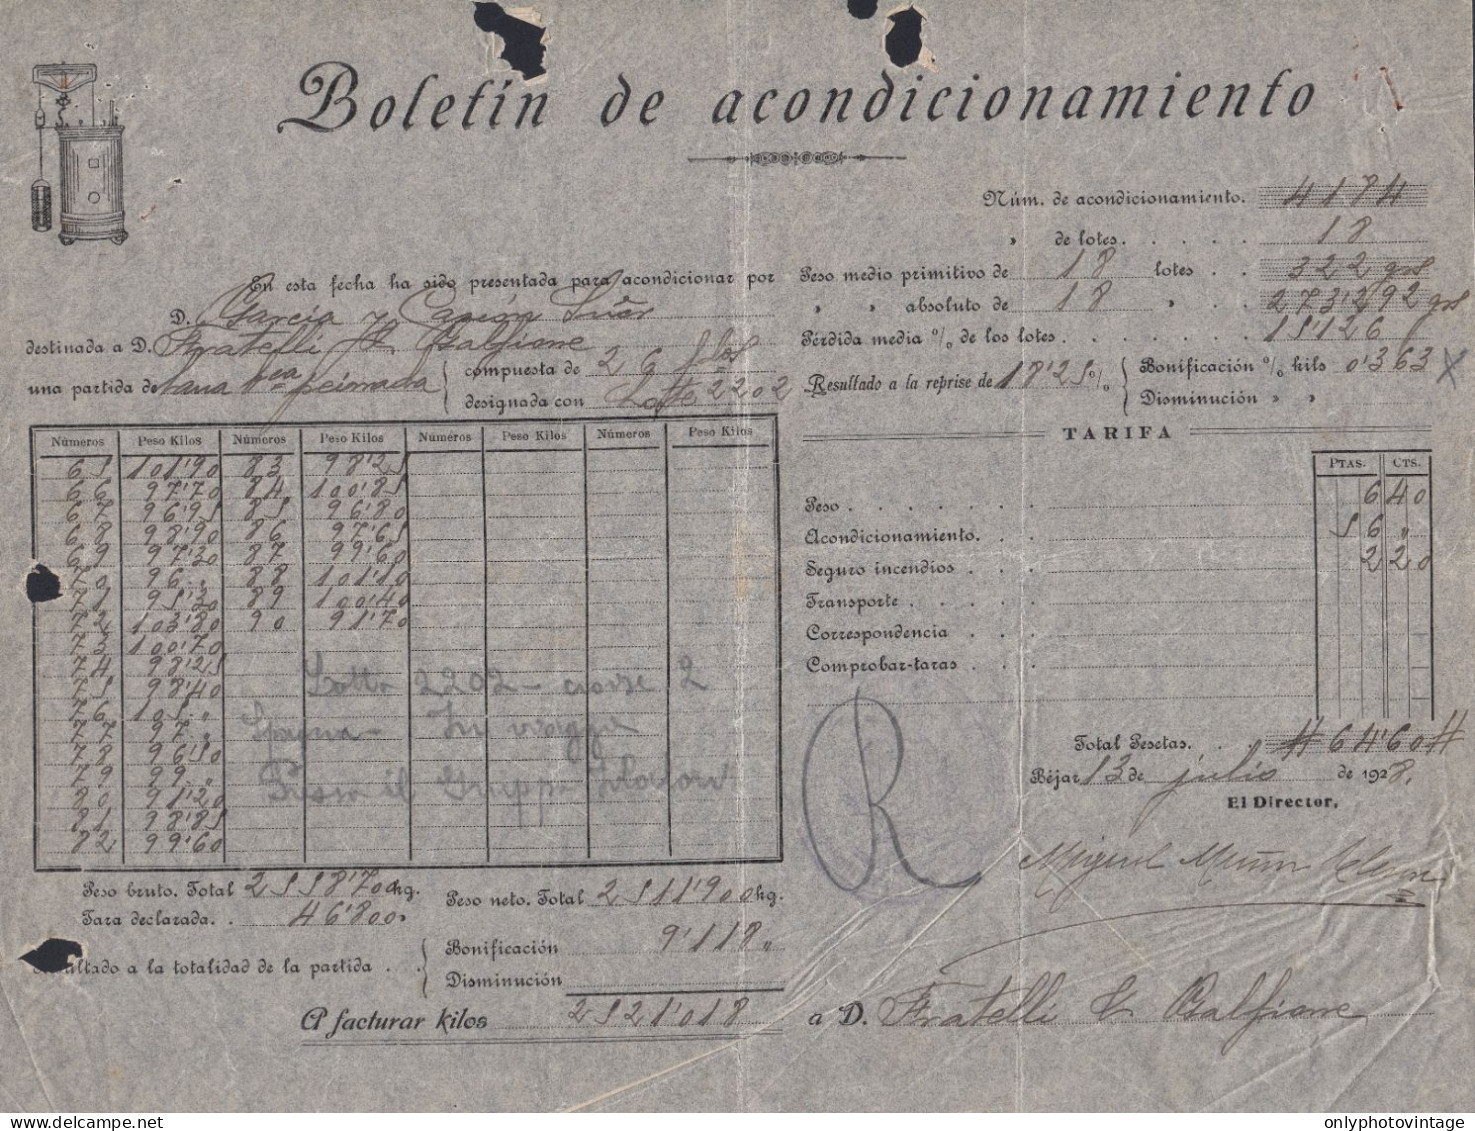 Boletín de acondicionamiento
Núm. de acondicionamiento. 4184
» de lotes. . . . . 18
En esta fecha ha sido presentada para acondicionar por
D. García y Cascón Sucr
destinada a D. Fratelli G. Balfione
una partida de lana 1ª peinada
compuesta de 26 plos
designada con Lotto 2202
Peso medio primitivo de 18 lotes . . 322 grs
» » absoluto de 18 » . . 273'292 grs
Pérdida media % de los lotes. . . . . . . 15'126
Resultado a la reprise de 18'25 %
Bonificación % kils 0'363 x
Disminución » »
Números Peso Kilos Números Peso Kilos Números Peso Kilos Números Peso Kilos
65 101'90 83 98'25
66 97'70 84 100'85
67 96'95 85 96'80
68 98'90 86 97'65
69 97'30 87 99'60
70 96 „ 88 101'10
71 95'30 89 100'40
72 103'80 90 91'70
73 100'70
74 98'25
75 98'40
76 105 „
77 97 „
78 96'50
79 99 „
80 91'20
81 98'85
82 99'60
Lotto 2202 -
Spagna - In viaggio
Peso bruto. Total 2558'70 hg.
Tara declarada. . 46'800
Peso neto. Total 2511'900 hg.
Resultado a la totalidad de la partida . .
Bonificación 9'118 „
Disminución
A facturar kilos 2521'018
TARIFA
PTAS. CTS.
Peso. . . . . . . 6 40
Acondicionamiento. . . 56 „
Seguro incendios . . . 2 20
Transporte . . . . .
Correspondencia . . .
Comprobar-taras . . .
Total Pesetas. . . # 64'60 #
Béjar 13 de julio de 1928.
El Director,
R
Miguel Muñoz
a D. Fratelli G. Balfione
onlyphotovintage